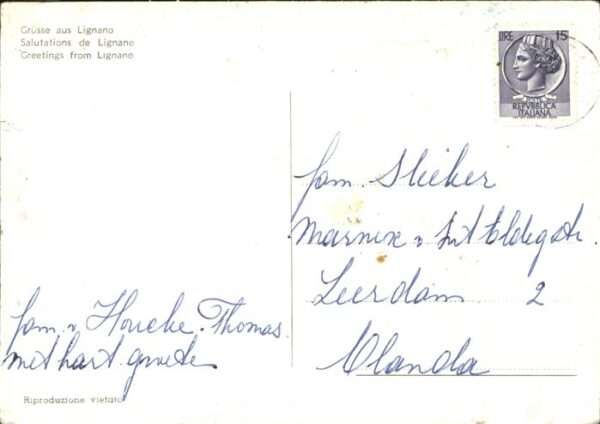 Grüsse aus Lignano
Salutations de Lignano
Greetings from Lignano
LIRE 15
REPVBBLICA
ITALIANA
fam. Slieker
Marnix v. St Aldegstr.
Leerdam 2
Olanda
fam. v. Houcke-Thomas.
met hart. groeten
Riproduzione vietata